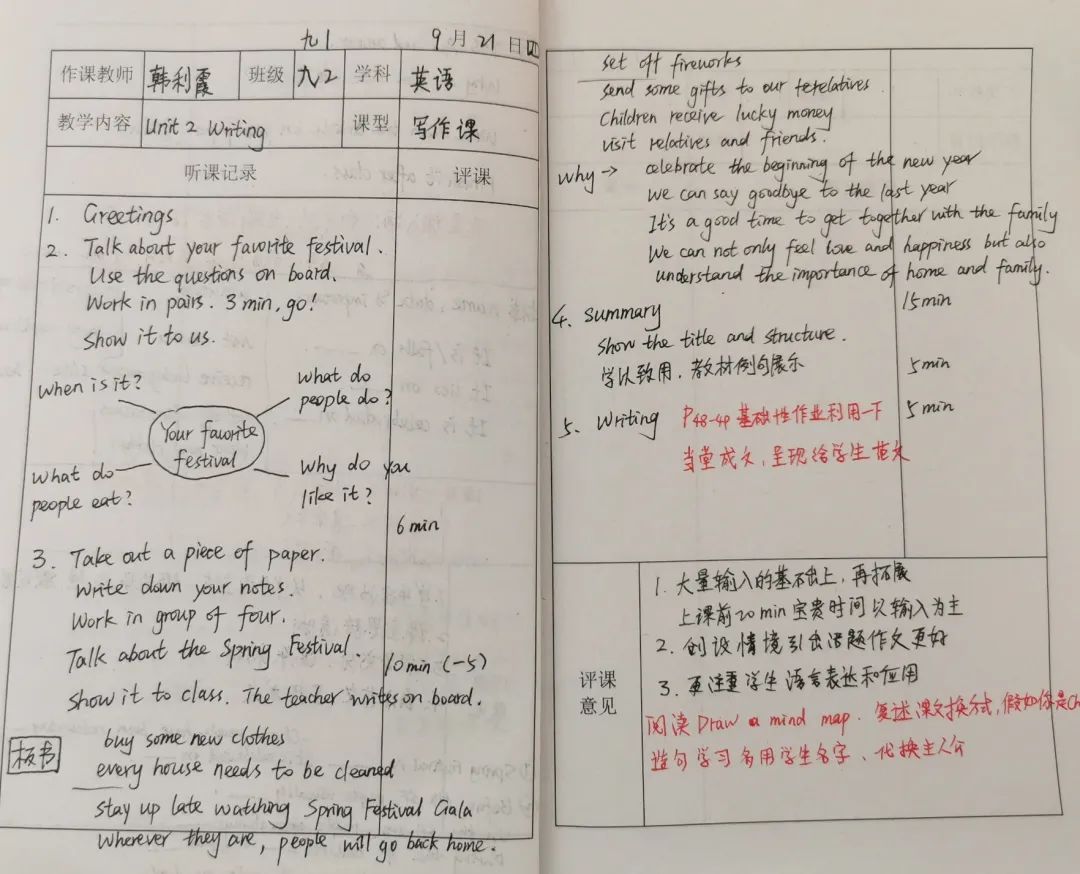 九1 9月21日
作课教师 韩利霞 班级 九2 学科 英语
教学内容 Unit 2 Writing 课型 写作课
听课记录 评课
1. Greetings
2. Talk about your favorite festival.
Use the questions on board.
Work in pairs. 3 min, go!
Show it to us.
When is it?
What do
people do?
Your favorite
festival
What do
people eat?
Why do you
like it?
6 min
3. Take out a piece of paper.
Write down your notes.
Work in group of four.
Talk about the Spring Festival.
10 min (-5)
Show it to class. The teacher writes on board.
板书
buy some new clothes
every house needs to be cleaned
stay up late watching Spring Festival Gala
wherever they are, people will go back home.
set off fireworks
send some gifts to our relatives
Children receive lucky money
visit relatives and friends.
why → celebrate the beginning of the new year
We can say goodbye to the last year
It's a good time to get together with the family
We can not only feel love and happiness but also
understand the importance of home and family.
15 min
4. Summary
Show the title and structure.
学以致用，教材例句展示 5 min
5. Writing P48-49 基础性作业利用一下 5 min
当堂成文，呈现给学生范文
评课
意见
1. 大量输入的基础上，再拓展
上课前20 min宝贵时间以输入为主
2. 创设情境引出话题作文更好
3. 更注重学生语言表达和应用
阅读 Draw a mind map. 复述课文换方式，假如你是Ch
造句学习多用学生名字、代换主人公